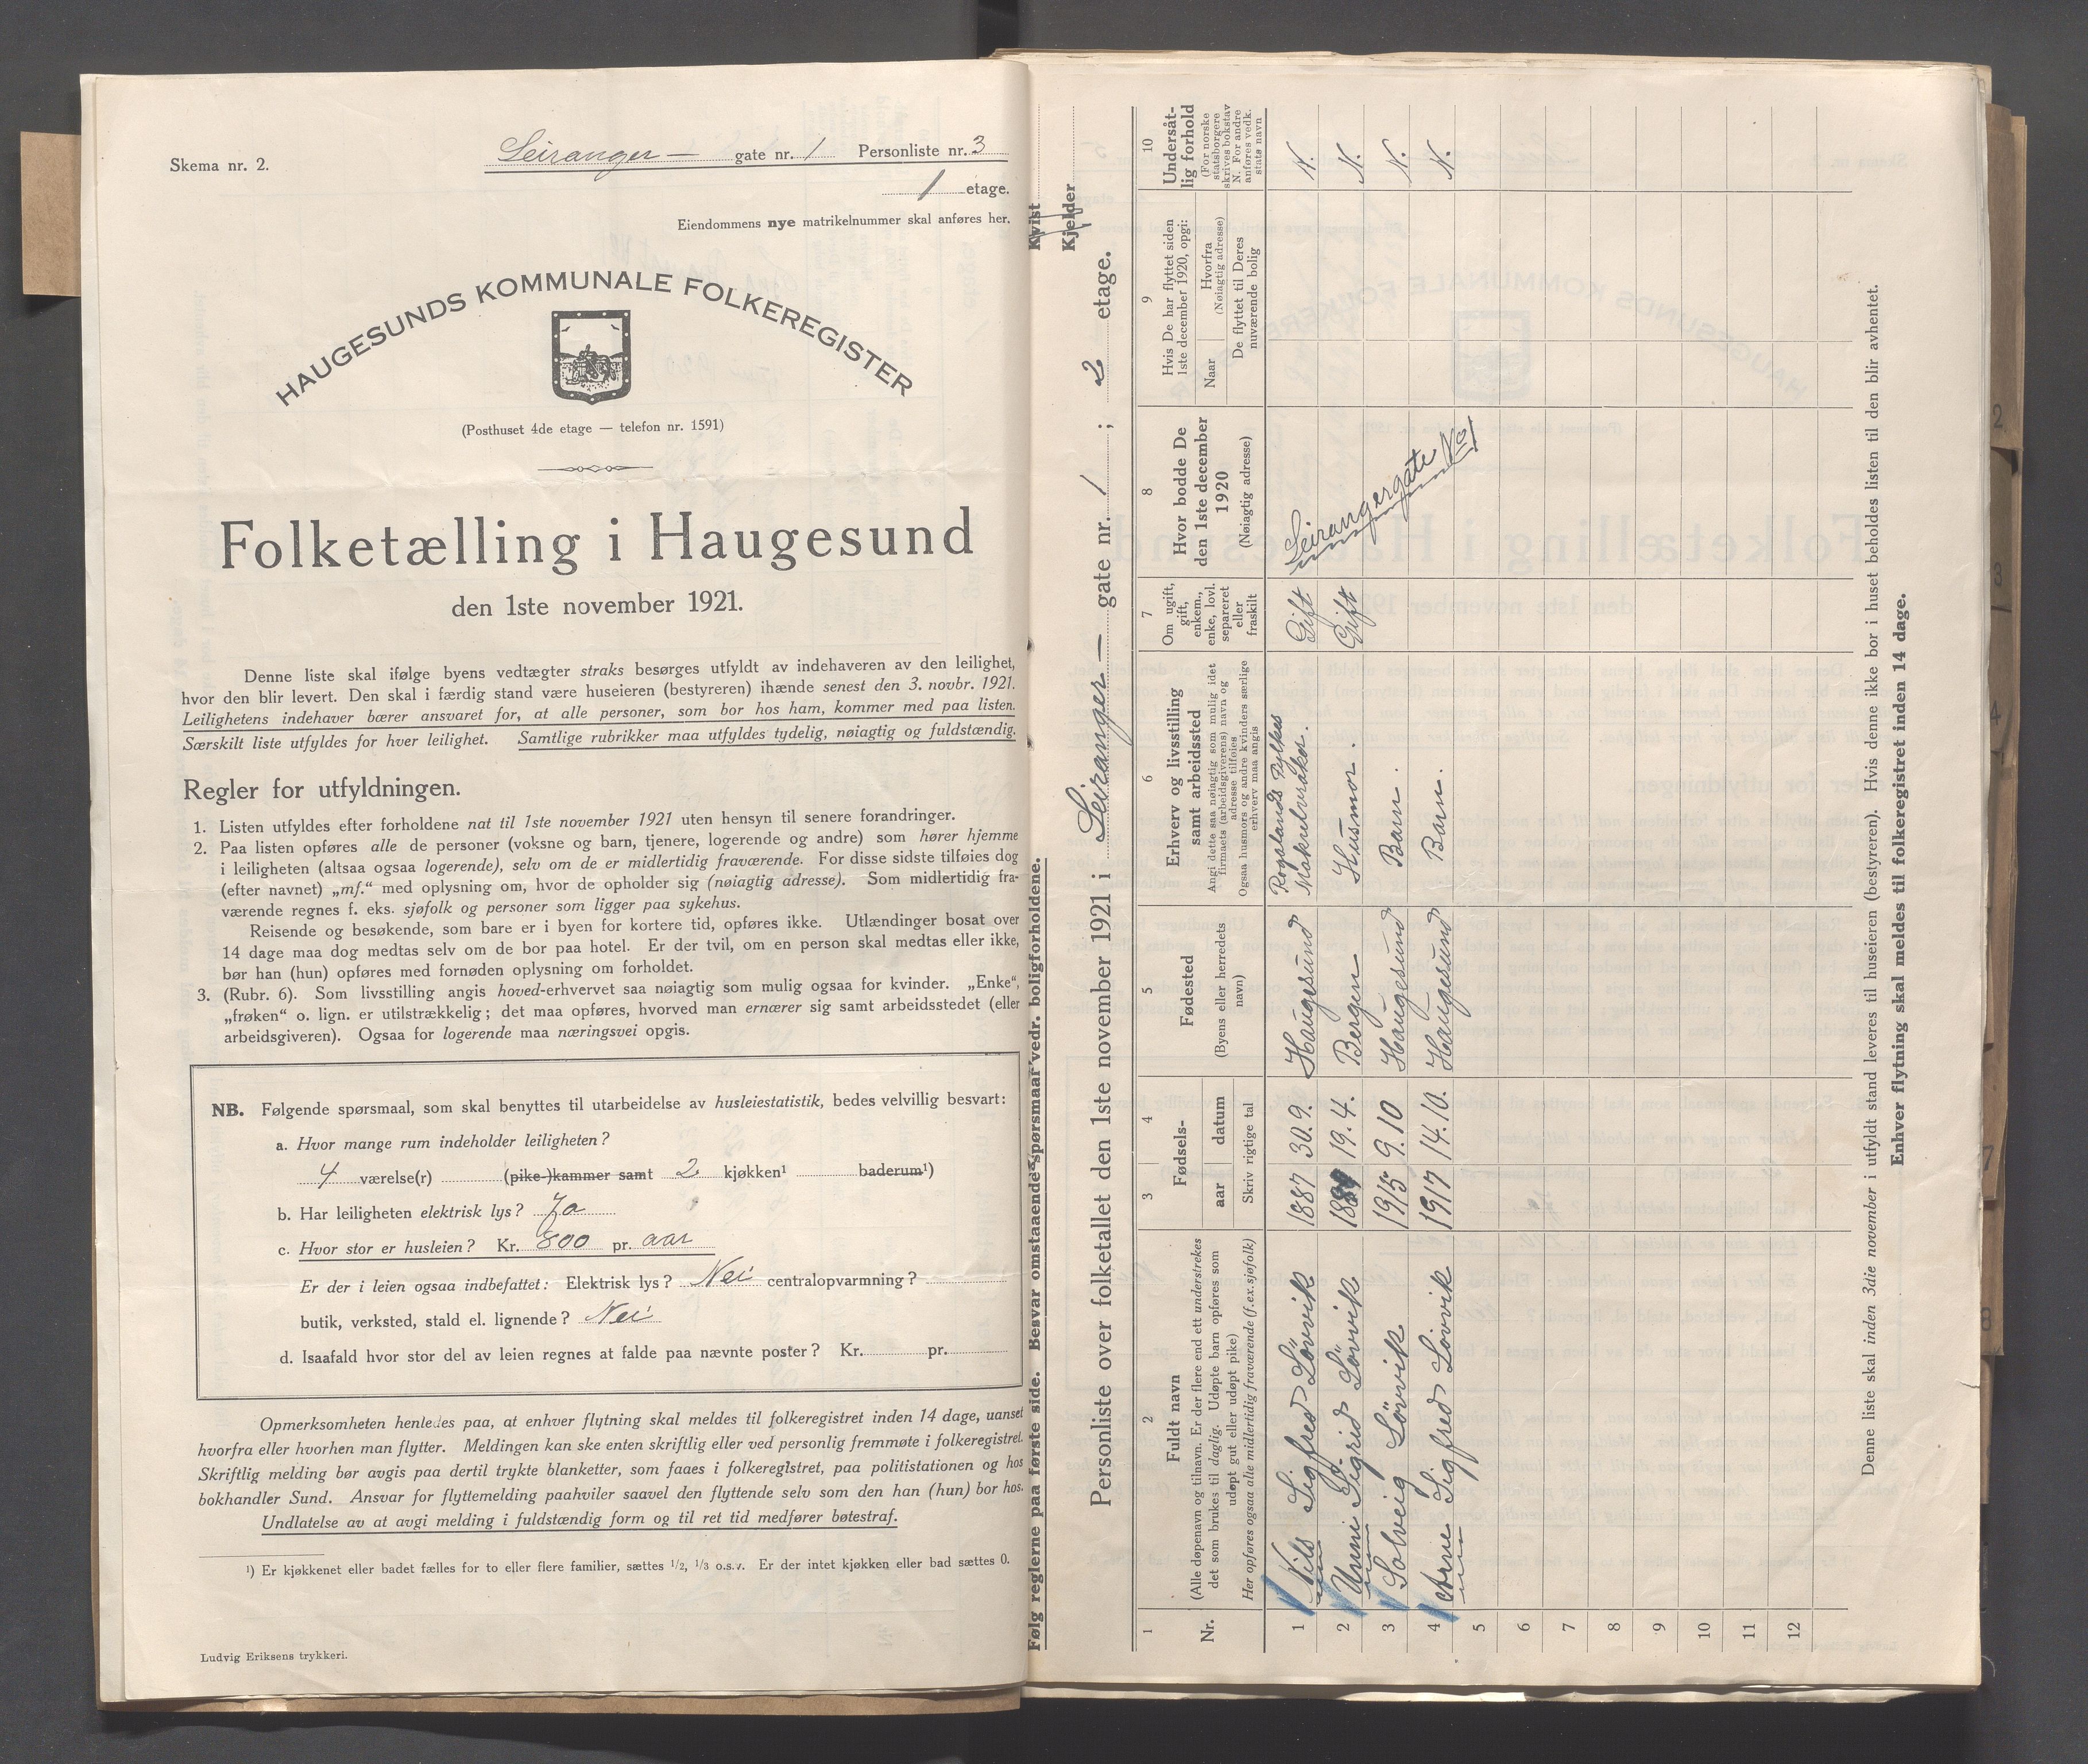 Skema nr. 2.
Seiranger — gate nr. 1 Personliste nr. 3
1 etage.
Eiendommens nye matrikelnummer skal anføres her.
HAUGESUNDS KOMMUNALE FOLKEREGISTER
(Posthuset 4de etage — telefon nr. 1591)
Folketælling i Haugesund
den 1ste november 1921.
Denne liste skal ifølge byens vedtægter straks besørges utfyldt av indehaveren av den leilighet,
hvor den blir levert. Den skal i færdig stand være huseieren (bestyreren) ihænde senest den 3. novbr. 1921.
Leilighetens indehaver bærer ansvaret for, at alle personer, som bor hos ham, kommer med paa listen.
Særskilt liste utfyldes for hver leilighet. Samtlige rubrikker maa utfyldes tydelig, nøiagtig og fuldstændig.
Regler for utfyldningen.
1. Listen utfyldes efter forholdene nat til 1ste november 1921 uten hensyn til senere forandringer.
2. Paa listen opføres alle de personer (voksne og barn, tjenere, logerende og andre) som hører hjemme
i leiligheten (altsaa ogsaa logerende), selv om de er midlertidig fraværende. For disse sidste tilføies dog
(efter navnet) „mf.“ med oplysning om, hvor de opholder sig (nøiagtig adresse). Som midlertidig fra-
værende regnes f. eks. sjøfolk og personer som ligger paa sykehus.
Reisende og besøkende, som bare er i byen for kortere tid, opføres ikke. Utlændinger bosat over
14 dage maa dog medtas selv om de bor paa hotel. Er der tvil, om en person skal medtas eller ikke,
bør han (hun) opføres med fornøden oplysning om forholdet.
3. (Rubr. 6). Som livsstilling angis hoved-erhvervet saa nøiagtig som mulig ogsaa for kvinder. „Enke“,
„frøken“ o. lign. er utilstrækkelig; det maa opføres, hvorved man ernærer sig samt arbeidsstedet (eller
arbeidsgiveren). Ogsaa for logerende maa næringsvei opgis.
NB. Følgende spørsmaal, som skal benyttes til utarbeidelse av husleiestatistik, bedes velvillig besvart:
a. Hvor mange rum indeholder leiligheten?
4 værelse(r) (pike-)kammer samt 2 kjøkken¹ baderum¹)
b. Har leiligheten elektrisk lys? Ja
c. Hvor stor er husleien? Kr. 800 pr. aar
Er der i leien ogsaa indbefattet: Elektrisk lys? Nei centralopvarmning?
butik, verksted, stald el. lignende? Nei
d. Isaafald hvor stor del av leien regnes at falde paa nævnte poster? Kr. pr.
Opmerksomheten henledes paa, at enhver flytning skal meldes til folkeregistret inden 14 dage, uanset
hvorfra eller hvorhen man flytter. Meldingen kan ske enten skriftlig eller ved personlig fremmøte i folkeregistret.
Skriftlig melding bør avgis paa dertil trykte blanketter, som faaes i folkeregistret, paa politistationen og hos
bokhandler Sund. Ansvar for flyttemelding paahviler saavel den flyttende selv som den han (hun) bor hos.
Undlatelse av at avgi melding i fuldstændig form og til ret tid medfører bøtestraf.
¹) Er kjøkkenet eller badet fælles for to eller flere familier, sættes 1/2, 1/3 o.s.v. Er der intet kjøkken eller bad sættes 0.
Ludvig Eriksens trykkeri.
Følg reglerne paa første side. Besvar omstaaende spørsmaal vedr. boligforholdene.
Kvist
Kjelder
Personliste over folketallet den 1ste november 1921 i Seiranger — gate nr. 1 ; 2 etage.
1 2 3 4 5 6 7 8 9 10
Nr.
Fuldt navn
(Alle døpenavn og tilnavn. Er der flere end ett understrekes
det som brukes til daglig. Udøpte barn opføres som
udøpt gut eller udøpt pike)
Her opføres ogsaa alle midlertidig fraværende (f.ex.sjøfolk)
Fødsels-
aar datum
Skriv rigtige tal
Fødested
(Byens eller herredets
navn)
Erhverv og livsstilling
samt arbeidssted
Angi dette saa nøiagtig som mulig idet
firmaets (arbeidsgiverens) navn og
adresse tilføies
Ogsaa husmors og andre kvinders særlige
erhverv maa angis
Om ugift,
gift,
enkem.,
enke, lovl.
separeret
eller
fraskilt
Hvor bodde De
den 1ste december
1920
(Nøiagtig adresse)
Hvis De har flyttet siden
1ste december 1920, opgi:
Naar
Hvorfra
(Nøiagtig adresse)
De flyttet til Deres
nuværende bolig
Undersåt-
lig forhold
(For norske
statsborgere
skrives bokstav
N. For andre
anføres vedk.
stats navn
1 Nils Sigfred Lövvik 1887 30.9. Haugesund Rogalands Fylkes Makrelvraker. Gift Seirangergate No 1 N.
2 Unni Sigrid Lövvik 19.4. Bergen Husmor. Gift N.
3 Solveig Lövvik 1915 9.10 Haugesund Barn. N.
4 Arne Sigfred Lövvik 1917 14.10. Haugesund Barn. N.
5
6
7
8
9
10
11
12
Denne liste skal inden 3die november i utfyldt stand leveres til huseieren (bestyreren). Hvis denne ikke bor i huset beholdes listen til den blir avhentet.
Enhver flytning skal meldes til folkeregistret inden 14 dage.
2
3
4
7
8